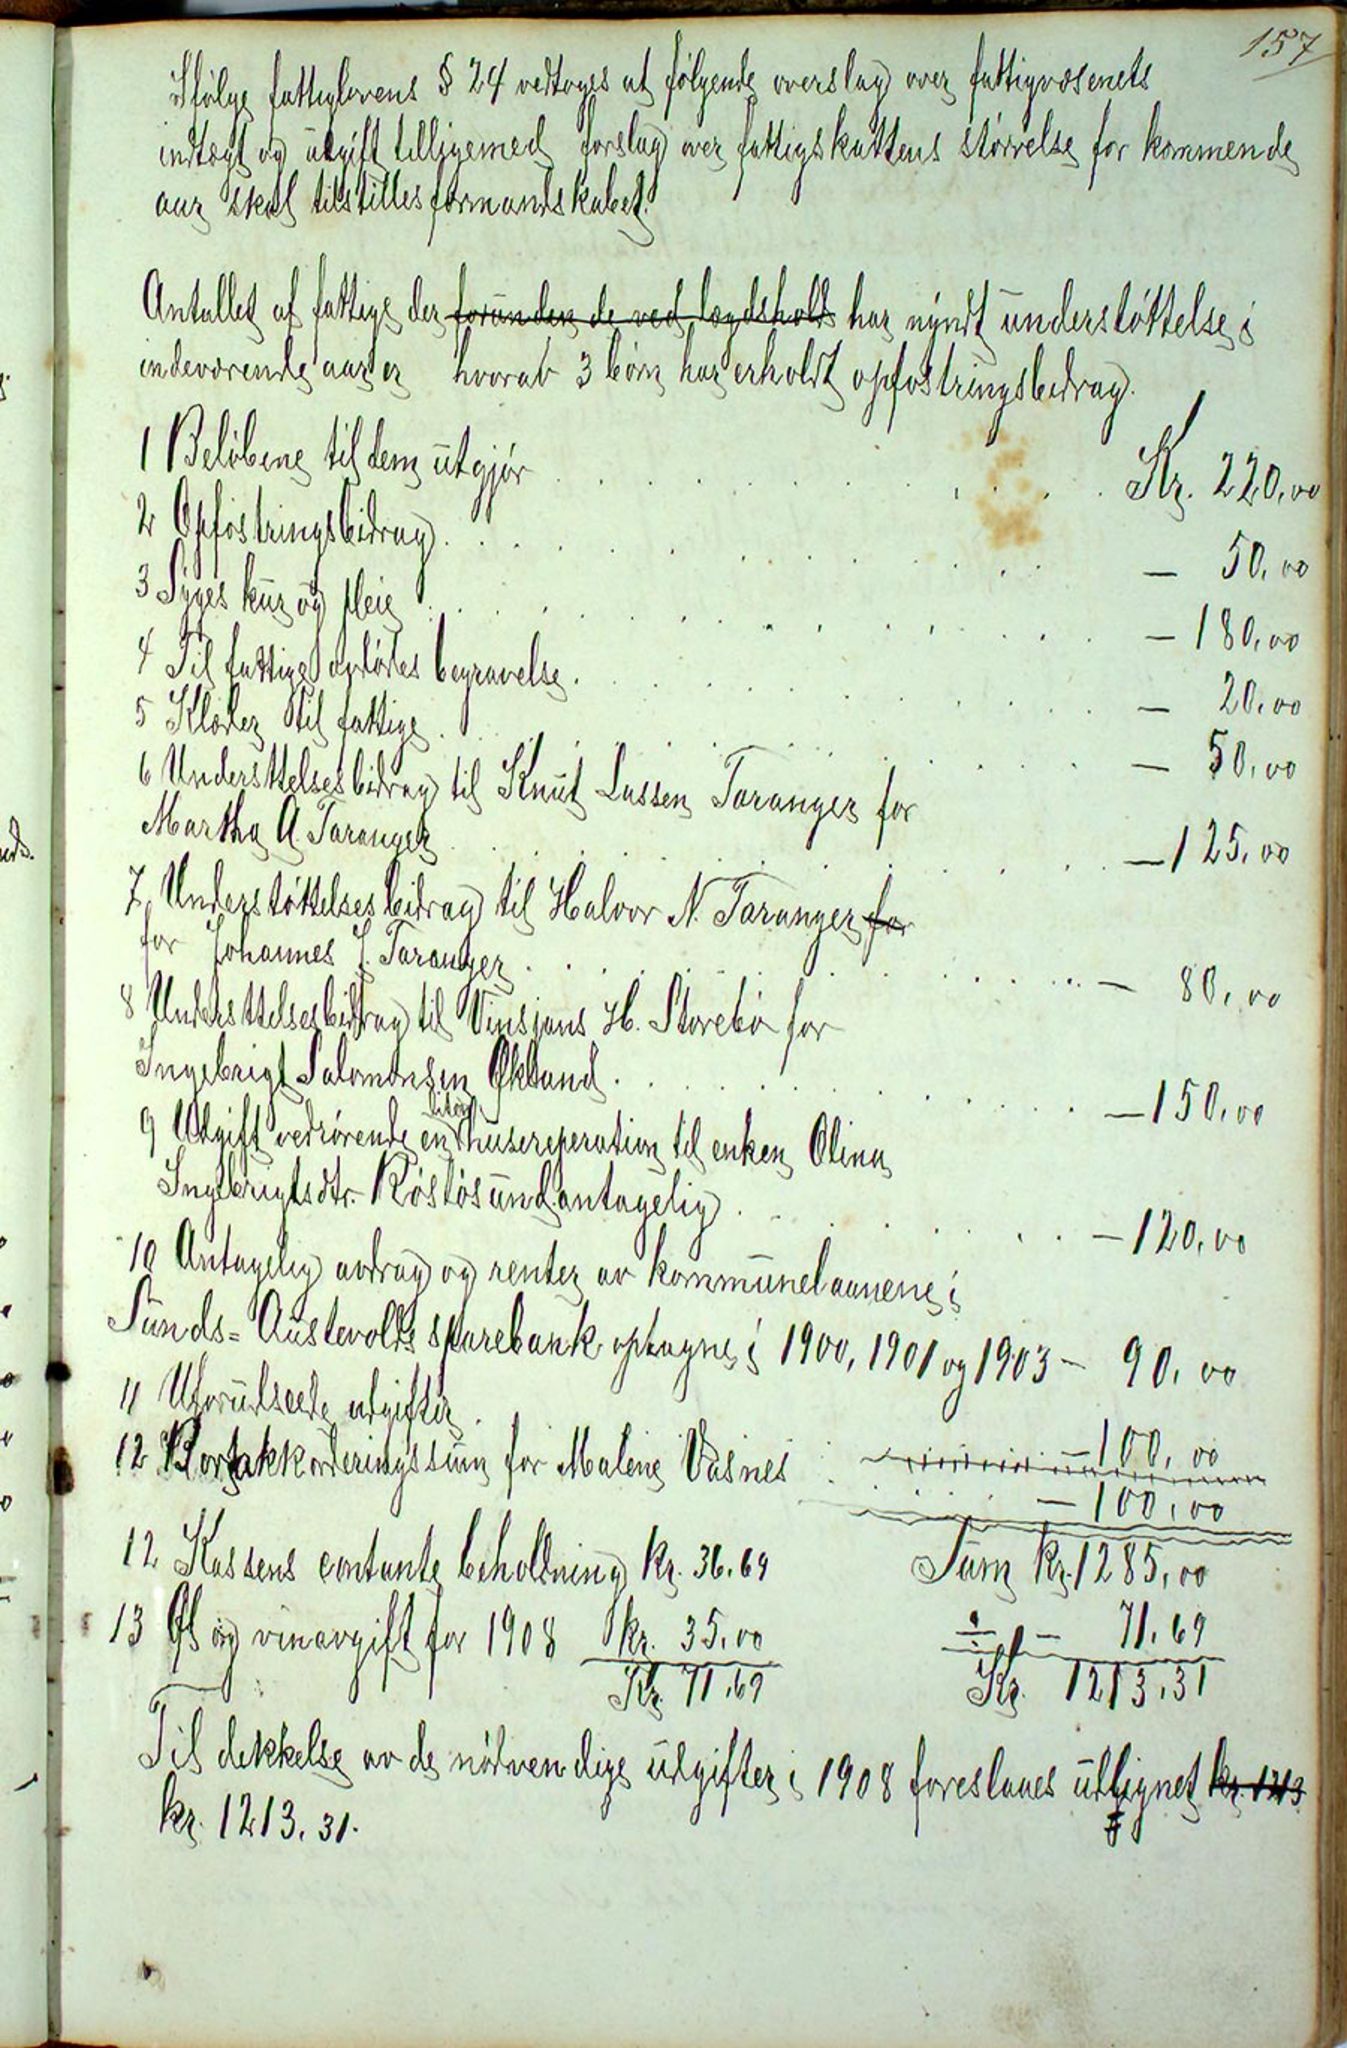 157
Ifölge fattiglovens § 24 vedtoges at følgende overslag over fattigvæsenets
indtægt og utgift tilligemed forslag over fattigskattens størrelse for kommende
aar skal tilstilles formandskabet.
Antallet af fattige der forunden de ved lægdshold har nÿndt understøttelse i
indeværende aar er hvorav 3 børn har erholdt opfostringsbidrag.
1 Beløbene til dem utgjør . . . . . . Kr. 220,00
2 Opfostringsbidrag . . . . . . — 50,00
3 Syges kur og pleie . . . . . . — 180,00
4 Til fattige avdødes begravelse . . . . . . — 20,00
5 Klæder til fattige . . . . . . — 50,00
6 Understtelsesbidrag til Knut Lassen Taranger for
Martha A. Taranger . . . . . . — 125,00
7 Understøttelsesbidrag til Halvor N. Taranger for
for Johannes J. Taranger . . . . . . — 80,00
8 Understtelsesbidrag til Vinsjans H. Storebø for
Ingebrigt Salomonsen Økland . . . . . . — 150,00
9 Utgift vedrørende en liten husereperation til enken Olina
Ingebrigtsdtr. Røstøsund antagelig . . . . . . — 120,00
10 Antagelig avdrag og renter av kommunelaanene i
Sunds= Austevolds sparebank optagne i 1900, 1901 og 1903 — 90,00
11 Uforudseede udgifter . — 100,00
12 Bortakkorderingssum for Malene Vasnes . . . . . — 100,00
Sum kr. 1285,00
12 Kassens contante beholdning kr. 36,69
13 Øl og vinavgift for 1908 kr. 35,00 ÷ — 71,69
Kr. 71,69 Kr. 1213,31
Til dekkelse av de nødvendige udgifter i 1908 foreslaaes utlignet kr. 1213
kr. 1213,31.